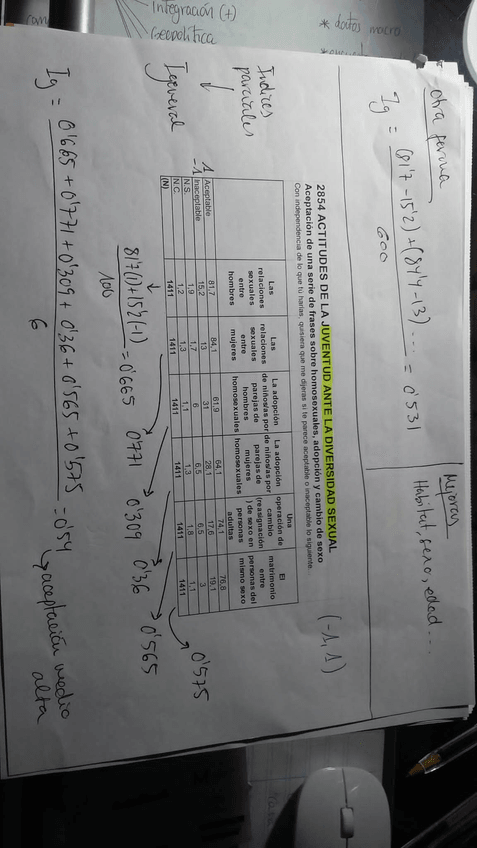 Integración (+)
Geopolítica
* datos macro
otra forma
Ig = (81'7-15'2)+(84'4-13)... = 0'531
600
Mejoras
Habitat, sexo, edad...
2854 ACTITUDES DE LA JUVENTUD ANTE LA DIVERSIDAD SEXUAL
Aceptación de una serie de frases sobre homosexuales, adopción y cambio de sexo
Con independencia de lo que tú harías, quisiera que me dijeras si te parece aceptable o inaceptable lo siguiente.
(-1,1)
Índices parciales
Igeneral
Las relaciones sexuales entre hombres
Las relaciones sexuales entre mujeres
La adopción de niños/as por parejas de hombres homosexuales
La adopción de niños/as por parejas de mujeres homosexuales
Una operación de cambio (reasignación) de sexo en personas adultas
El matrimonio entre personas del mismo sexo
1 Aceptable 81,7 84,1 61,9 64,1 74,1 76,8
-1 Inaceptable 15,2 13 31 28,1 17,6 19,1
N.S. 1,9 1,7 6 6,5 6,5 3
N.C. 1,2 1,3 1,1 1,3 1,8 1,1
(N) 1411 1411 1411 1411 1411 1411
81'7(1)+15'2(-1) = 0'665 0'771 0'309 0'36 0'565 0'575
100
Ig = 0'665 + 0'771 + 0'309 + 0'36 + 0'565 + 0'575 = 0'54 aceptación medio alta
6